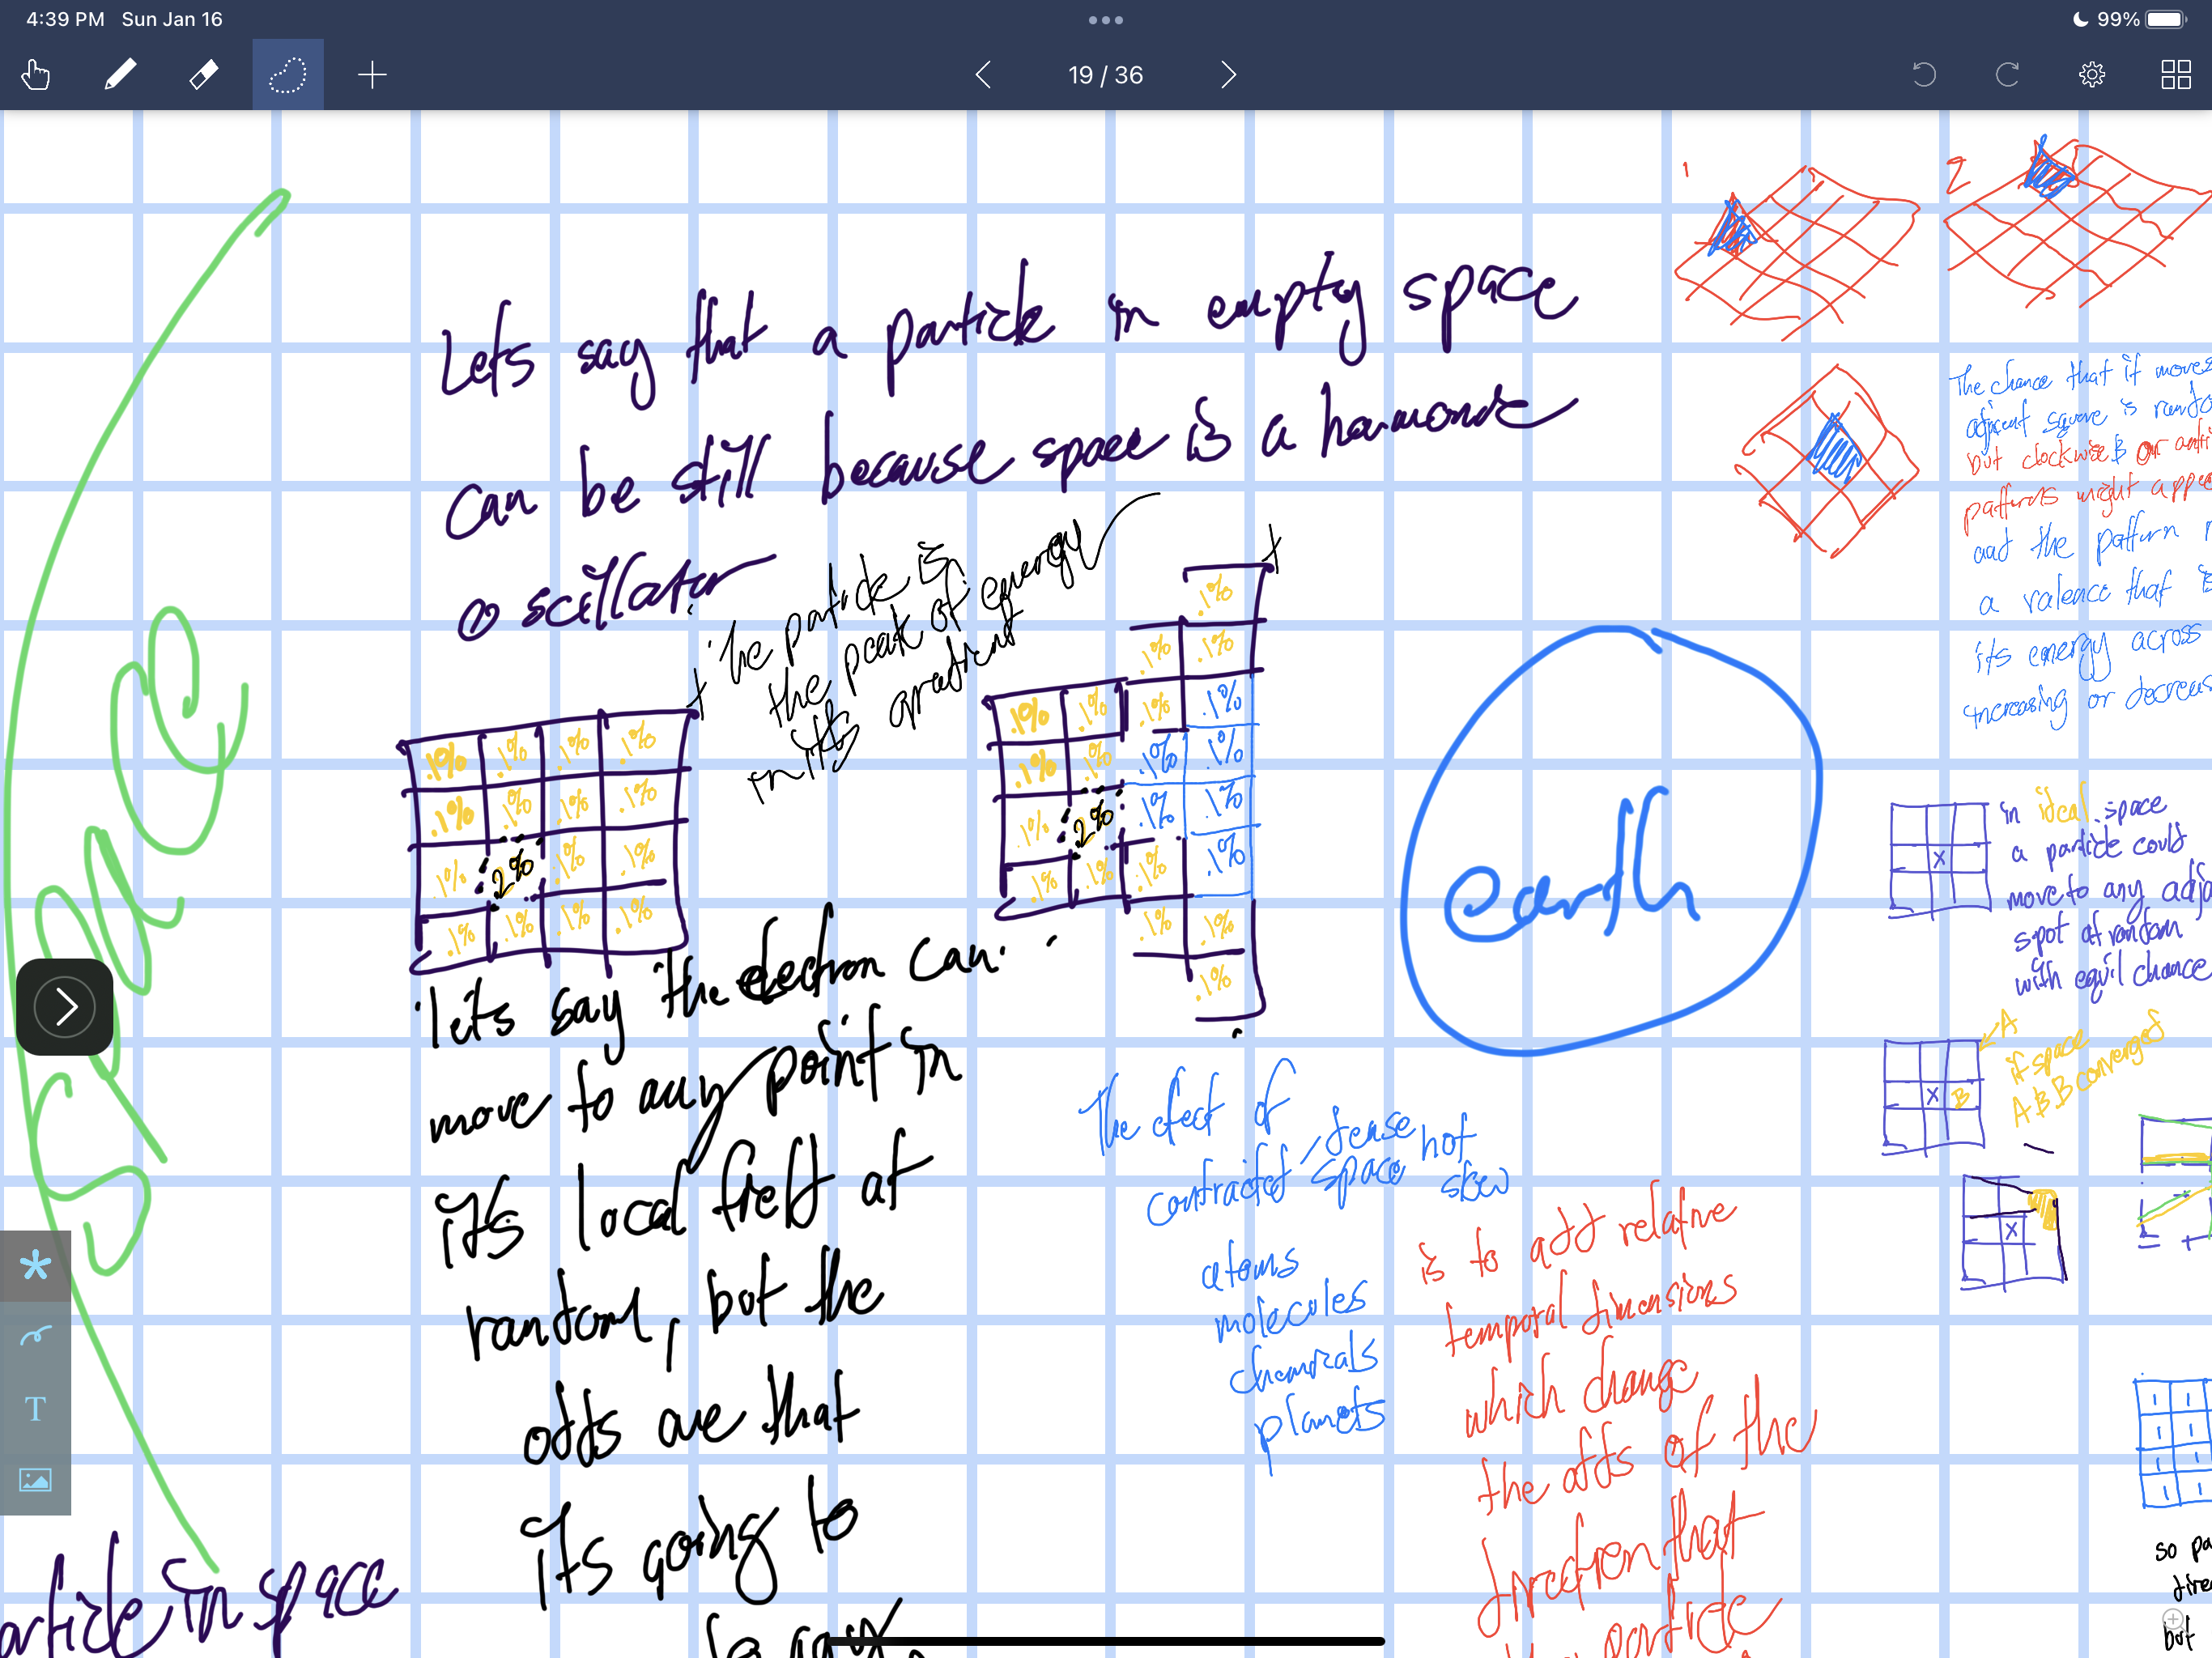 4:39 PM Sun Jan 16
99%
19 / 36
Space
Lets say that a particle in empty space
can be still because space is a harmonic
oscillator
The particle is
the peak of energy
in its gradient
t
.1% .1% .1% .1%
.1% .1% .1% .1%
.1% 2% .1% .1%
.1% .1% .1% .1%
t
.1%
.1% .1%
.1% .1% .1% .1%
.1% .1% .1% .1%
.1% 2% .1% .1%
.1% .1% .1% .1%
.1% .1%
.1%
lets say the electron can
move to any point in
it's local field at
random, but the
odds are that
its going to
article in space
earth
The efect of
contracted / dense hot
space skew
atoms
molecules
chemicals
planets
is to add relative
temporal dimensions
which change
the odds of the
direction that
particle
1
2
The chance that it moves
adjacent square is rando
but clockwise & or anti
patterns might appe
and the pattern
a valence that
its energy across
increasing or decreas
x
in ideal space
a particle could
move to any adja
spot at random
with equil chance
A
X B
if space
A & B converged
X
1 1
1 1
1 1
1 1
so pa
dire
but
T